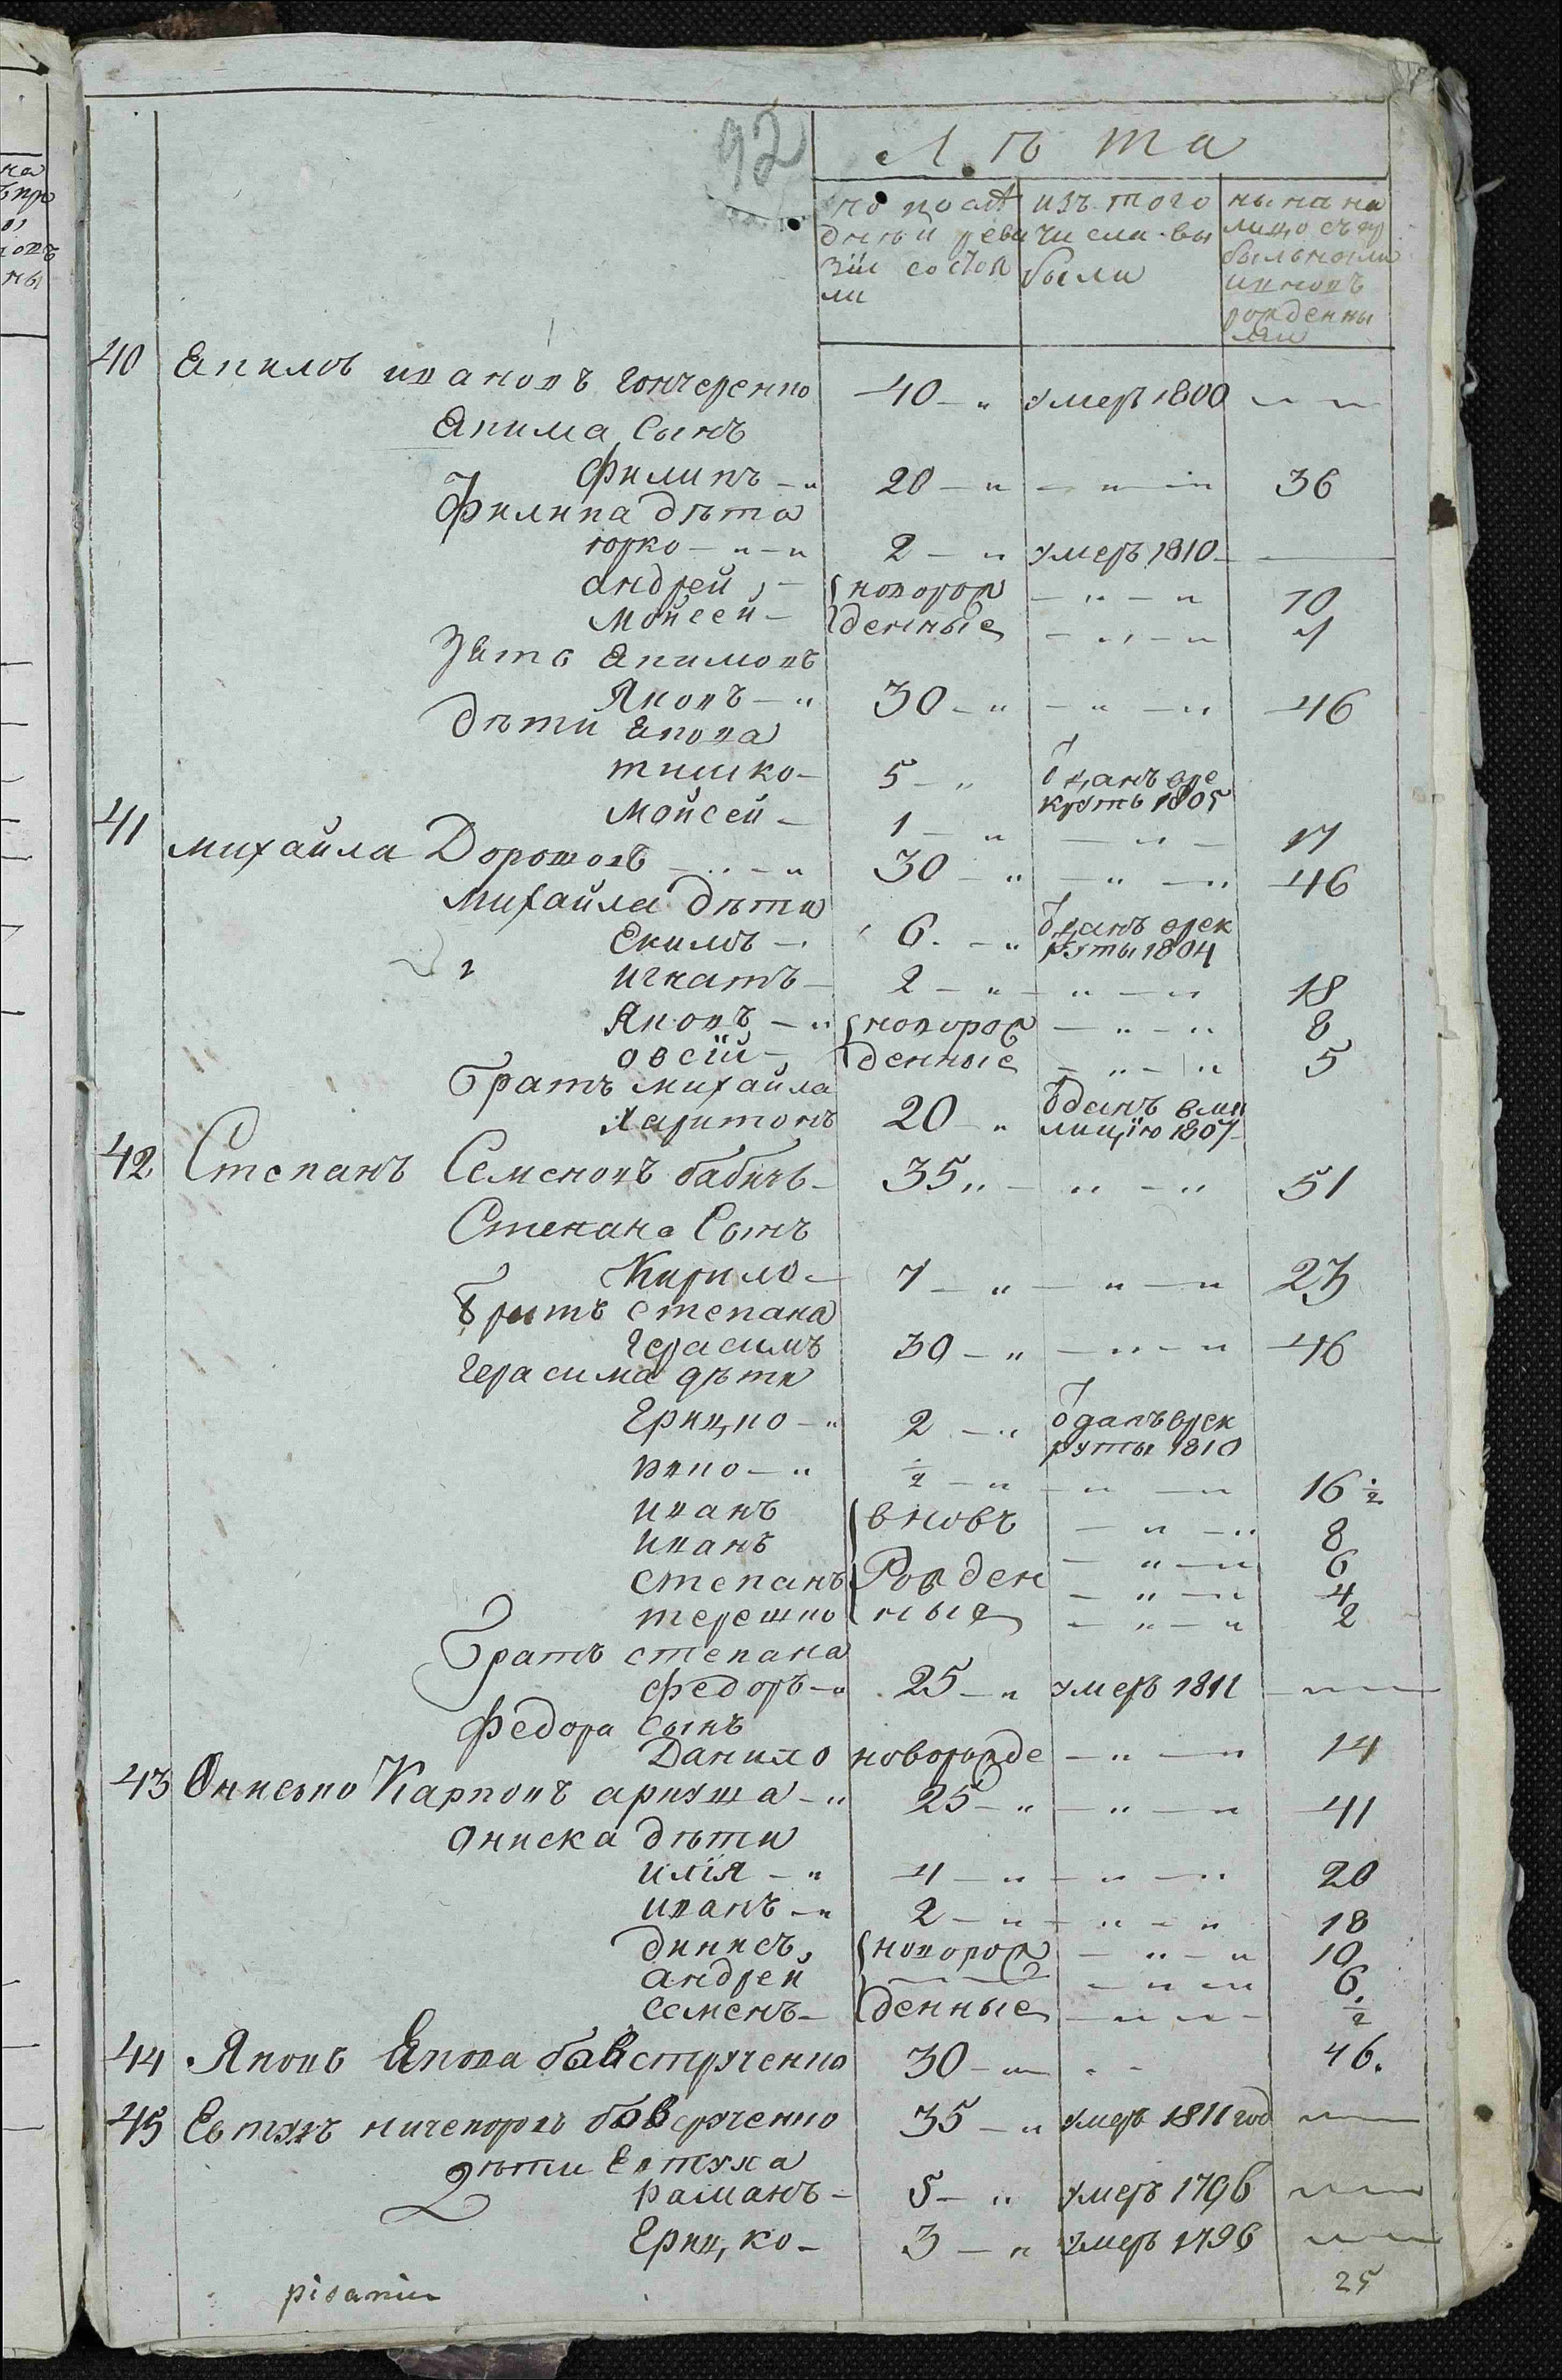 92
Лѣта
по послѣ
дней реви
зіи состоя
ли
изъ того
числа вы
были
нынѣ на
лицо съ пр
былыми
и вновь
рожденны
ми
40 Екимъ ивановъ гончеренко 40 умеръ 1800
Екима Сынъ
филипъ 20 36
Филипа дѣти
юрко 2 умеръ 1810
андрей новорож 10
Мойсей денные 7
Зять Екимовъ
Яковъ 30 46
дѣти Якова
тимко 5 отданъ вре
круты 1805
Мойсей 1 17
41 михайла Дорошовъ 30 46
михайла дѣти
Екимъ 6 отданъ врек
руты 1804
игнатъ 2 18
Яковъ новорож 8
овсій денные 5
братъ михайла
харитонъ 20 отданъ вми
лицію 1807
42 Степанъ Семеновъ бабичъ 35 51
Степана Сынъ
Кирило 7 23
братъ степана
герасимъ 30 46
герасима дѣти
грицко 2 отданъ врек
руты 1810
½ 16 ½
иванъ вновь 8
иванъ 6
степанъ Рожден 4
терешко ные 2
братъ степана
федоръ 25 умеръ 1811
федора сынъ
Данило новорожде 14
43 Онисько Карповъ 25 41
Ониска дѣти
илія 4 20
иванъ 2 18
динисъ новорож 10
андрей 6
семенъ денные ½
44 Яковъ Якова 30 46
45 Евтухъ ничепоровъ 35 умеръ 1811 год
дѣти Евтуха
раманъ 5 умеръ 1796
Грицко 3 умеръ 1796
25